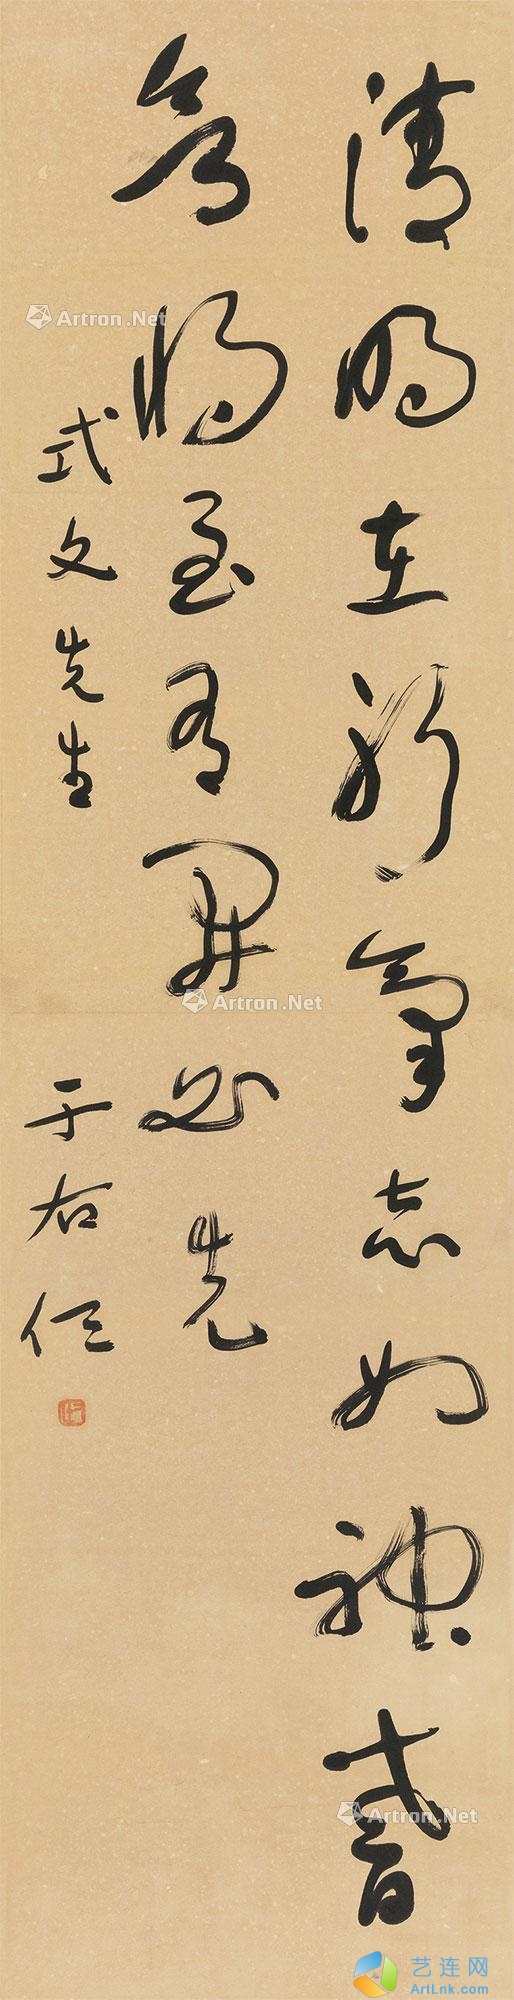 清明在躬气志如神嗜
欲将至有开必先
式文先生
于右任
Artron.Net
Artron.Net
Artron.Net
艺连网
ArtLnk.com